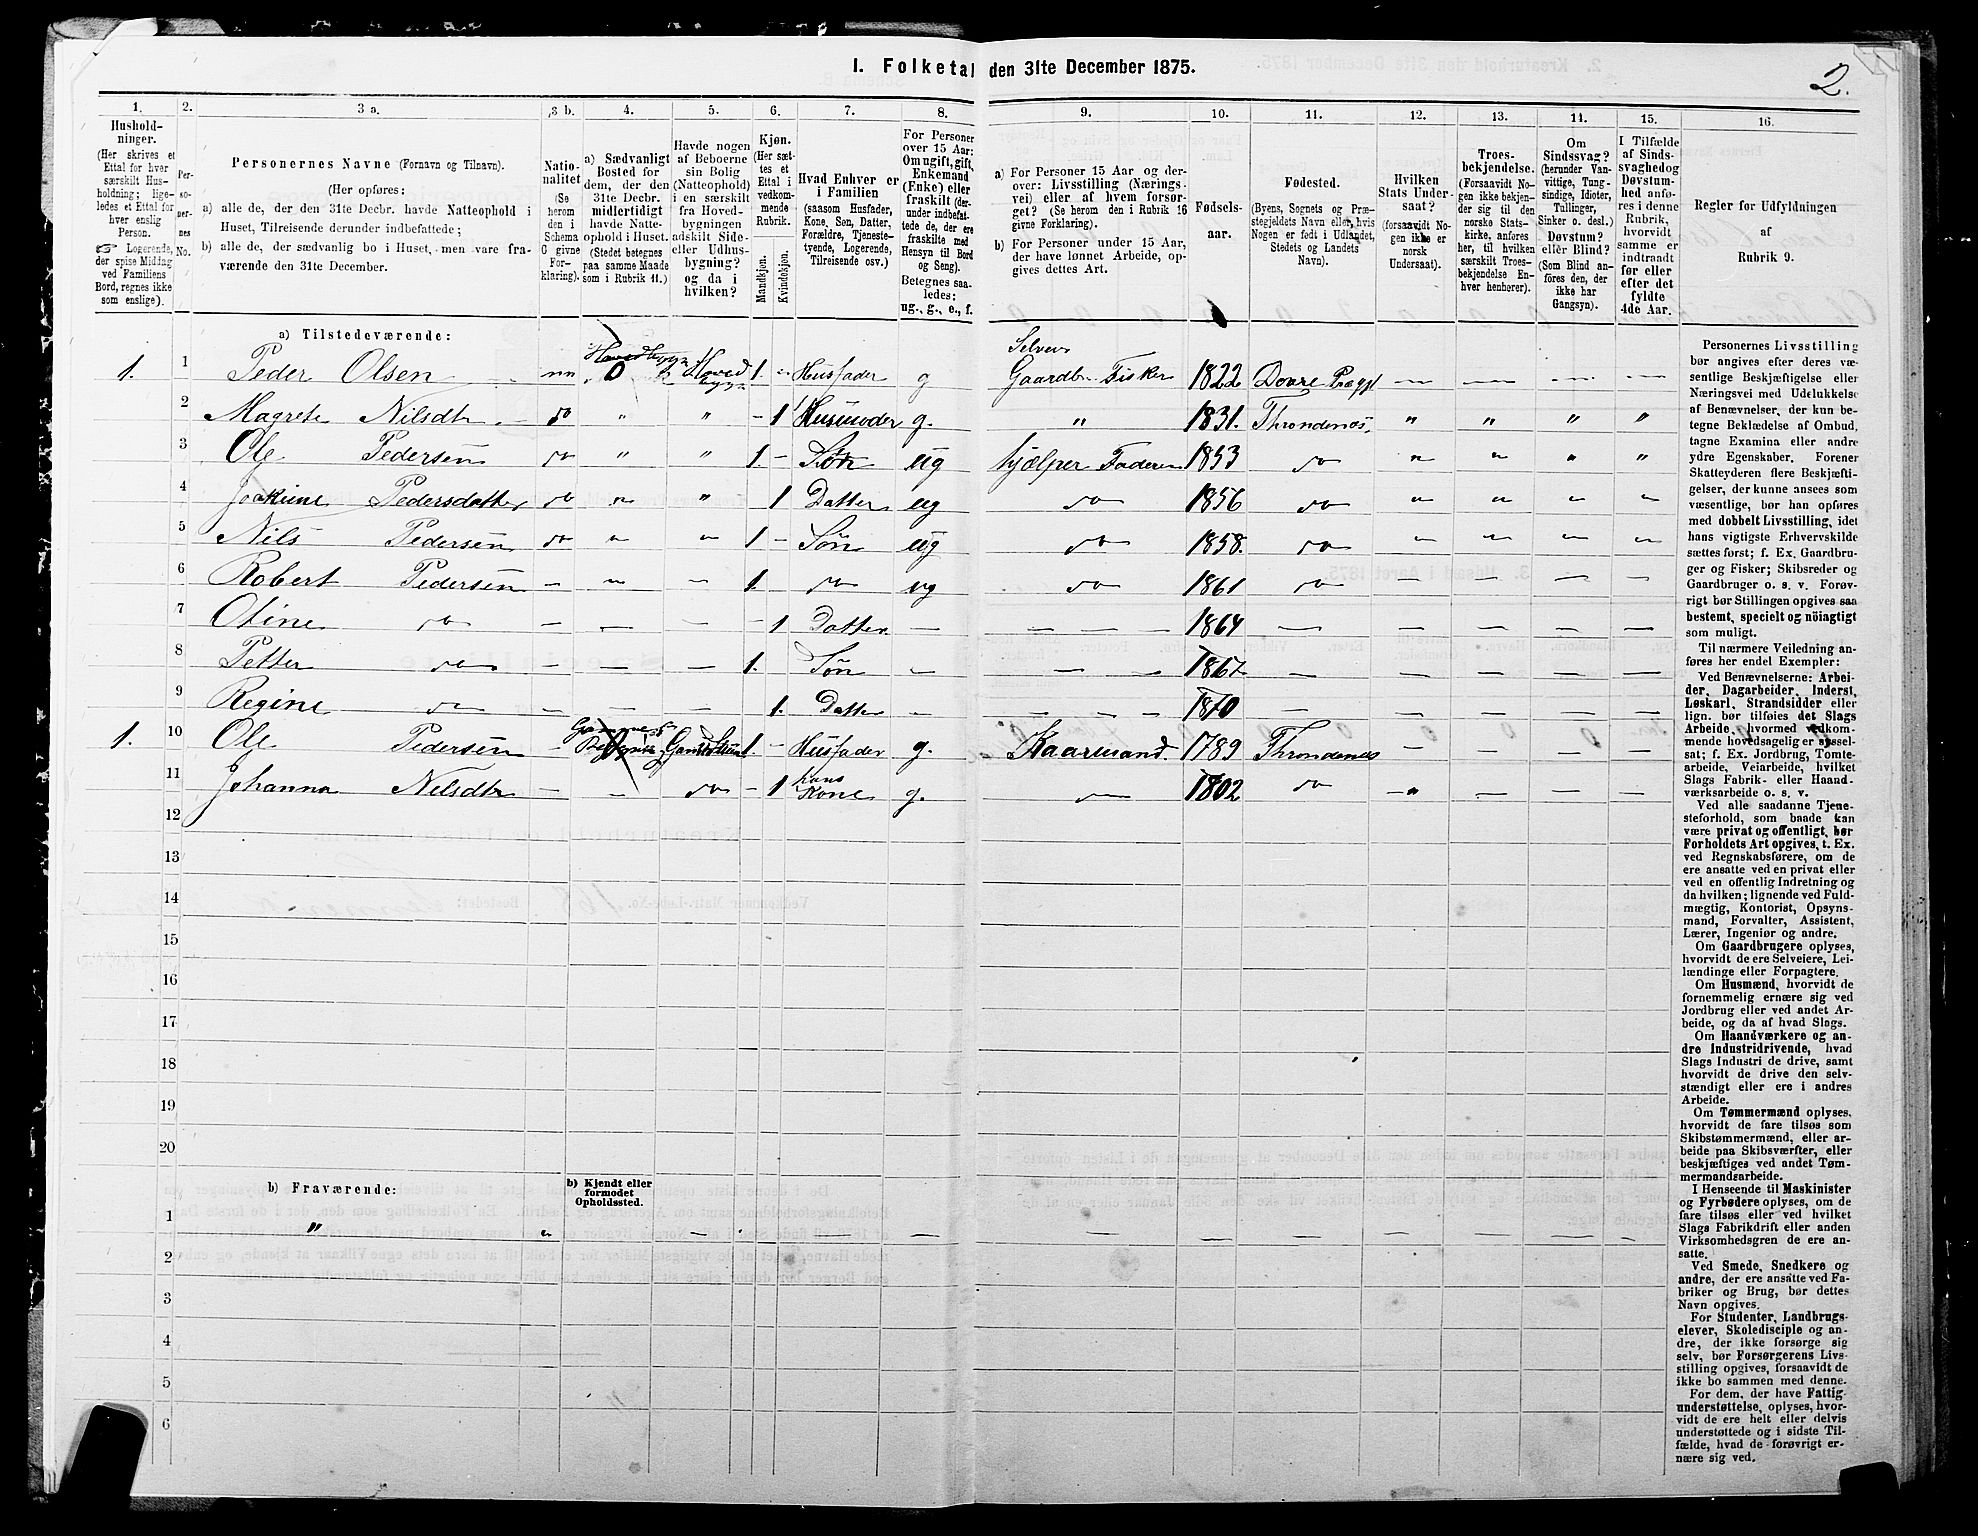 2.
I. Folketal den 31te December 1875.
1. 2. 3 a. 3 b. 4. 5. 6. 7. 8. 9. 10. 11. 12. 13. 14. 15. 16.
Hushold-
ninger.
(Her skrives et
Ettal for hver
særskilt Hus-
holdning; lige-
ledes et Ettal for
hver enslig
Person.
☞ Logerende,
der spise Middag
ved Familiens
Bord, regnes ikke
som enslige).
Per-
so-
ner-
nes
No.
Personernes Navne (Fornavn og Tilnavn).
(Her opføres:
a) alle de, der den 31te Decbr. havde Natteophold i
Huset, Tilreisende derunder indbefattede;
b) alle de, der sædvanlig bo i Huset, men vare fra-
værende den 31te December.
Natio-
nalitet
(Se
herom
den i
Schema
C givne
For-
klaring).
a) Sædvanligt
Bosted for
dem, der den
31te Decbr.
midlertidigt
havde Natte-
ophold i Huset.
(Stedet betegnes
paa samme Maade
som i Rubrik 11.)
Havde nogen
af Beboerne
sin Bolig
(Natteophold)
i en særskilt
fra Hoved-
bygningen
adskilt Side-
eller Udhus-
bygning?
og da i
hvilken?
Kjøn.
(Her sæt-
tes et
Ettal i
vedkom-
mende
Rubrik.
Mandkjøn.
Kvindekjøn.
Hvad Enhver er
i Familien
(saasom Husfader,
Kone, Søn, Datter,
Forældre, Tjeneste-
tyende, Logerende,
Tilreisende osv.)
For Personer
over 15 Aar:
Om ugift, gift,
Enkemand
(Enke) eller
fraskilt (der-
under indbefat-
tede de, der ere
fraskilte med
Hensyn til Bord
og Seng).
Betegnes saa-
ledes:
ug., g., e., f.
a) For Personer 15 Aar og der-
over: Livsstilling (Nærings-
vei) eller af hvem forsør-
get? (Se herom den i Rubrik 16
givne Forklaring).
b) For Personer under 15 Aar,
der have lønnet Arbeide, op-
gives dettes Art.
Fødsels-
aar.
Fødested.
(Byens, Sognets og Præ-
stegjeldets Navn eller, hvis
Nogen er født i Udlandet,
Stedets og Landets
Navn).
Hvilken
Stats Under-
saat?
(forsaavidt No-
gen ikke er
norsk
Undersaat).
Troes-
bekjendelse.
(Forsaavidt No-
gen ikke bekjen-
der sig til den
norske Stats-
kirke, anføres
her, til hvilken
særskilt Troes-
bekjendelse En-
hver henhører).
Om
Sindssvag?
(herunder Van-
vittige, Tung-
sindige, Idioter,
Tullinger,
Sinker o. desl.)
Døvstum?
eller Blind?
(Som Blind an-
føres den, der
ikke har
Gangsyn).
I Tilfælde
af Sinds-
svaghed og
Døvstum-
hed anfø-
res i denne
Rubrik,
hvorvidt
samme er
indtraadt
før eller
efter det
fyldte
4de Aar.
Regler for Udfyldningen
af
Rubrik 9.
a) Tilstedeværende:
1. 1 Peder Olsen nn Hoved 1. Husfader g Selveir Gaardbr Fisker 1822 Dovre Præg
2 Magrete Nilsdtr do " " - 1 Husmoder g. " 1831. Throndenæs, " " " "
3 Ole Pedersen do " " 1. - Søn ug hjælper Faderen 1853 do " " " "
4 Joakime Pedersdatter do " " 1 Datter ug do 1856 do " " " "
5 Nils Pedersen do " " 1 - Søn ug do 1858. do
6 Robert Pedersen - - - 1. do ug do 1861 do
7 Otine do - - - - 1 Datter - - 1864 -
8 Petter do - - - 1. Søn - - 1867 -
9 Regine do - - - 1. Datter - - 1870
1. 10 Ole Pedersen - 1 - Husfader g. Kaarmand. 1789 Throndenæs
11 Johanna Nilsdtr - - do - 1 hans Kone g. do 1802 do
12
13
14
15
16
17
18
19
20
b) Fraværende:
b) Kjendt eller
formodet
Opholdssted.
1 "
2
3
4
5
6
Personernes Livsstilling
bør angives efter deres væ-
sentlige Beskjæftigelse eller
Næringsvei med Udelukkelse
af Benævnelser, der kun be-
tegne Beklædelse af Ombud,
tagne Examina eller andre
ydre Egenskaber. Forener
Skatteyderen flere Beskjæfti-
gelser, der kunne ansees som
væsentlige, bør han opføres
med dobbelt Livsstilling, idet
hans vigtigste Erhvervskilde
sættes først; f. Ex. Gaardbru-
ger og Fisker; Skibsreder og
Gaardbruger o. s. v. Forøv-
rigt bør Stillingen opgives saa
bestemt, specielt og nöiagtigt
som muligt.
Til nærmere Veiledning an-
føres her endel Exempler:
Ved Benævnelserne: Arbei-
der, Dagarbeider, Inderst,
Løskarl, Strandsidder eller
lign. bør tilføies det Slags
Arbeide, hvormed vedkom-
mende hovedsagelig er syssel-
sat; f. Ex. Jordbrug, Tomte-
arbeide, Veiarbeide, hvilket
Slags Fabrik- eller Haand-
værksarbeide o. s. v.
Ved alle saadanne Tjene-
steforhold, som baade kan
være privat og offentligt, bør
Forholdets Art opgives, t. Ex.
ved Regnskabsførere, om de
ere ansatte ved en privat eller
ved en offentlig Indretning og
da hvilken; lignende ved Fuld-
mægtig, Kontorist, Opsyns-
mand, Forvalter, Assistent,
Lærer, Ingeniør og andre.
Om Gaardbrugere oplyses,
hvorvidt de ere Selveiere, Lei-
lændinge eller Forpagtere.
Om Husmænd, hvorvidt de
fornemmelig ernære sig ved
Jordbrug eller ved andet Ar-
beide, og da af hvad Slags.
Om Haandværkere og an-
dre Industridrivende, hvad
Slags Industri de drive, samt
hvorvidt de drive den selv-
stændigt eller ere i andres
Arbeide.
Om Tømmermænd oplyses,
hvorvidt de fare tilsøs som
Skibstømmermænd, eller ar-
beide paa Skibsværfter, eller
beskjæftiges ved andet Tøm-
mermandsarbeide.
I Henseende til Maskinister
og Fyrbødere oplyses, om de
fare tilsøs eller ved hvilket
Slags Fabrikdrift eller anden
Virksomhedsgren de ere an-
satte.
Ved Smede, Snedkere og
andre, der ere ansatte ved Fa-
briker og Brug, bør dettes
Navn opgives.
For Studenter, Landbrugs-
elever, Skoledisciple og an-
dre, der ikke forsørge sig
selv, bør Forsørgerens Livs-
stilling opgives, forsaavidt de
ikke bo sammen med denne.
For dem, der have Fattig-
understøttelse, oplyses, hvor-
vidt de ere helt eller delvis
understøttede og i sidste Til-
fælde, hvad de forøvrigt er-
nære sig ved.